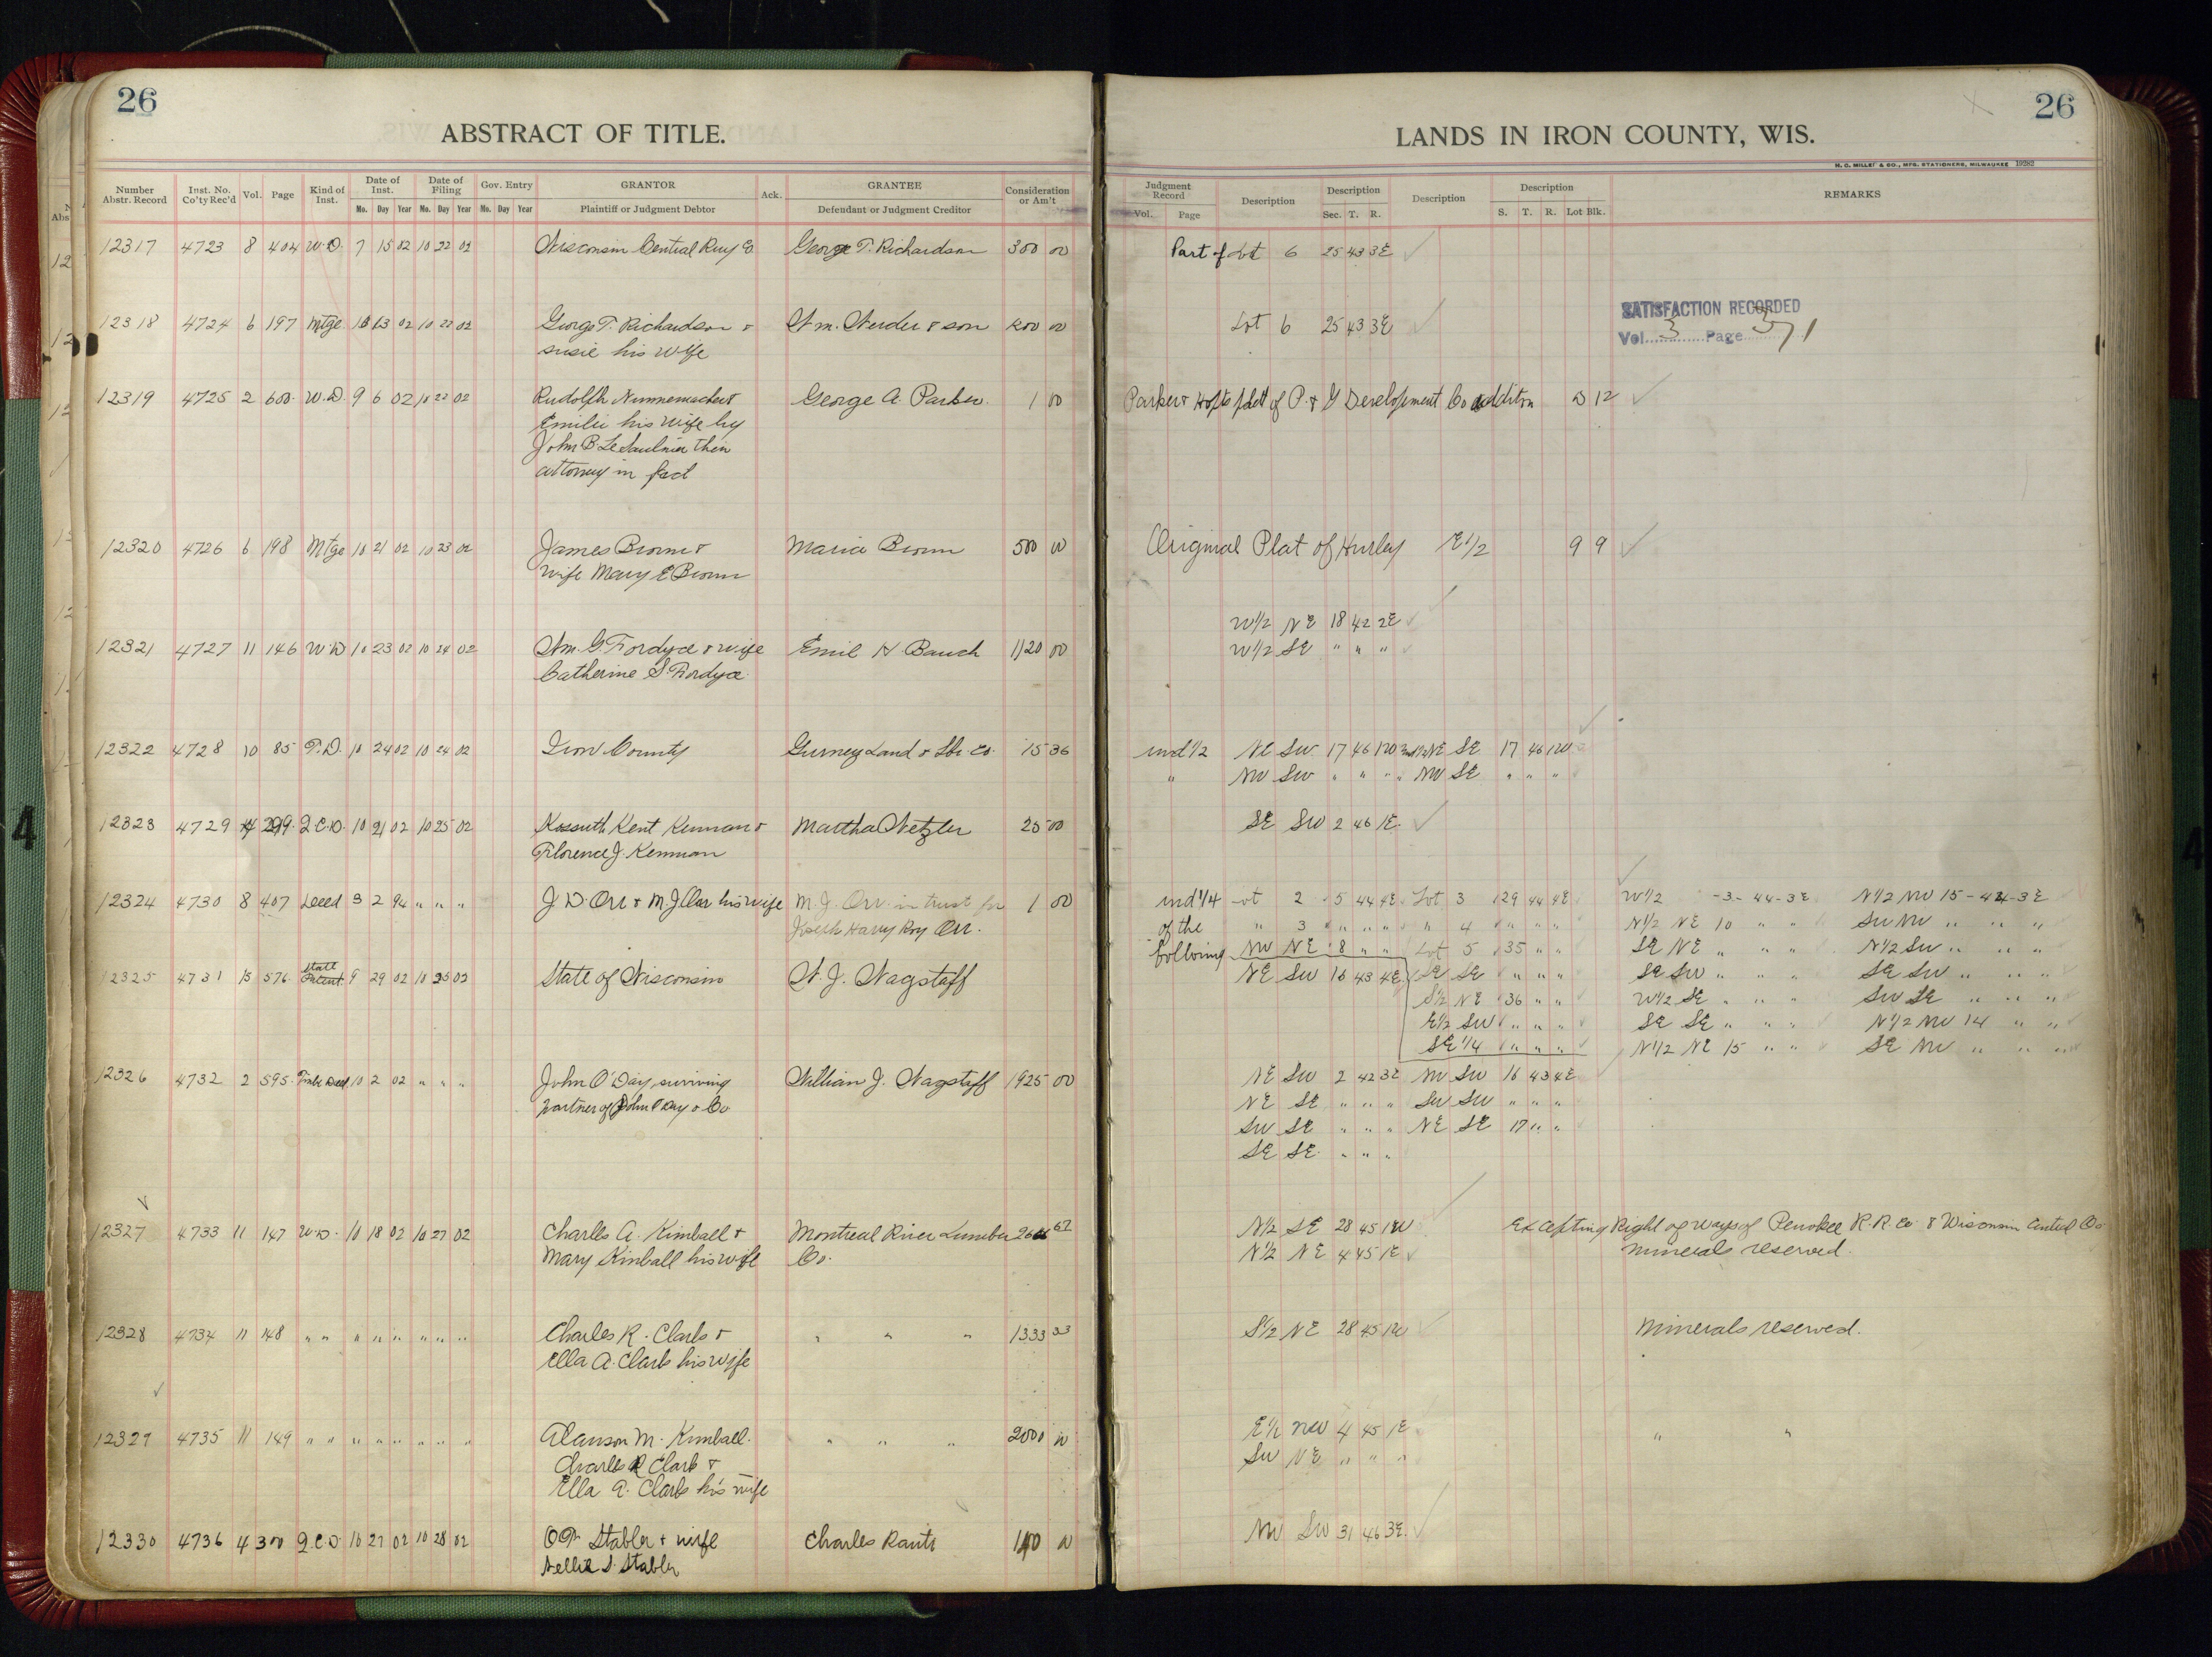 26
ABSTRACT OF TITLE.
Number Abstr. Record Inst. No. Co'ty Rec'd Vol. Page Kind of Inst. Date of Inst. Mo. Day Year Date of Filing Mo. Day Year Gov. Entry Mo. Day Year GRANTOR Plaintiff or Judgment Debtor Ack. GRANTEE Defendant or Judgment Creditor Consideration or Am't
12317 4723 8 404 W.D. 7 15 02 10 22 02 Wisconsin Central Rwy Co George T. Richardson 300 00
12318 4724 6 197 Mtge 10 13 02 10 22 02 George T. Richardson & Wm. & son 00
Susie his wife
12319 4725 2 600 W.D. 9 6 02 10 22 02 Rudolph Nunnemacher & George A. Parker. 1 00
Emilie his wife by
John B. Le Saulnier their
attorney in fact
12320 4726 6 198 Mtge 10 21 02 10 23 02 James Brown & Maria Brown 500 00
wife Mary E Brown
12321 4727 11 146 W D 10 23 02 10 24 02 Wm. G. Fordyce & wife Emil H. Bauch 1120 00
Catherine S. Fordyce
12322 4728 10 85 T.D. 10 24 02 10 24 02 Iron County Gurney Land & Lbr. Co. 15 36
12323 4729 4 299 Q.C.D. 10 21 02 10 25 02 Kossuth Kent Kennan & Martha Wetzler 25 00
Florence J. Kennan
12324 4730 8 407 Deed 3 2 94 " " " J. D. Orr & M. J. Orr his wife M. J. Orr in trust for 1 00
Joseph Harry Roy Orr.
12325 4731 576 State Patent 9 29 02 10 25 02 State of Wisconsin W. J. Wagstaff
12326 4732 2 595 Timb. Deed 10 2 02 " " " John O'Day surviving William J. Wagstaff 1925 00
partner of John O'Day & Co
12327 4733 11 147 W.D. 10 18 02 10 27 02 Charles A. Kimball & Montreal River Lumber 67
Mary Kimball his wife Co.
12328 4734 11 148 " " " " " " " " Charles R. Clark & " " " 1333 33
Ella A. Clark his wife
12329 4735 11 149 " " " " " " " " Alanson M. Kimball. " " " 2000 00
Charles R Clark &
Ella A. Clark his wife
12330 4736 4 300 Q.C.D. 10 27 02 10 28 02 Stabler & wife Charles 00
Nellie S. Stabler
26
LANDS IN IRON COUNTY, WIS.
H. C. MILLER & CO., MFG. STATIONERS, MILWAUKEE 19282
Judgment Record Vol. Page Description Description Sec. T. R. Description Description S. T. R. Lot Blk. REMARKS
Part of Lot 6 25 43 3E
Lot 6 25 43 3E SATISFACTION RECORDED
Vol. 3 Page 371
Parker & plat of P. & G Development Co addition 12
Original Plat of Hurley E1/2 9 9
W1/2 NE 18 42 2E
W1/2 SE " " "
und 1/2 NE SW 17 46 1W und 1/2 NE SE 17 46 1W
" NW SW " " " " NW SE " " "
SE SW 2 46 1E.
und 1/4 Lot 2 5 44 4E Lot 3 29 44 4E W1/2 -3- 44-3E N1/2 NW 15-44-3E
of the " 3 " " " " 4 " " " N1/2 NE 10 " " SW NW " " "
following NW NE 8 " " Lot 5 35 " " SE NE " " " N1/2 SW " " "
NE SW 16 43 4E SE SE " " " SE SW " " " SE SW " " "
S1/2 NE 36 " " W1/2 SE " " " SW SE " " "
E1/2 SW " " " SE SE " " " N1/2 NW 14 " "
SE 1/4 " " " N1/2 NE 15 " " SE NW " " "
NE SW 2 42 3E NW SW 16 43 4E
NE SE " " " SW SW " " "
SW SE " " " NE SE 17 " "
SE SE " " "
N1/2 SE 28 45 1W Excepting Right of ways of Penokee R.R. Co. & Wisconsin Central Co.
N1/2 NE 4 45 1E minerals reserved.
S1/2 NE 28 45 1W Minerals reserved.
E1/2 NW 4 45 1E " "
SW NE " " "
NW SW 31 46 3E.